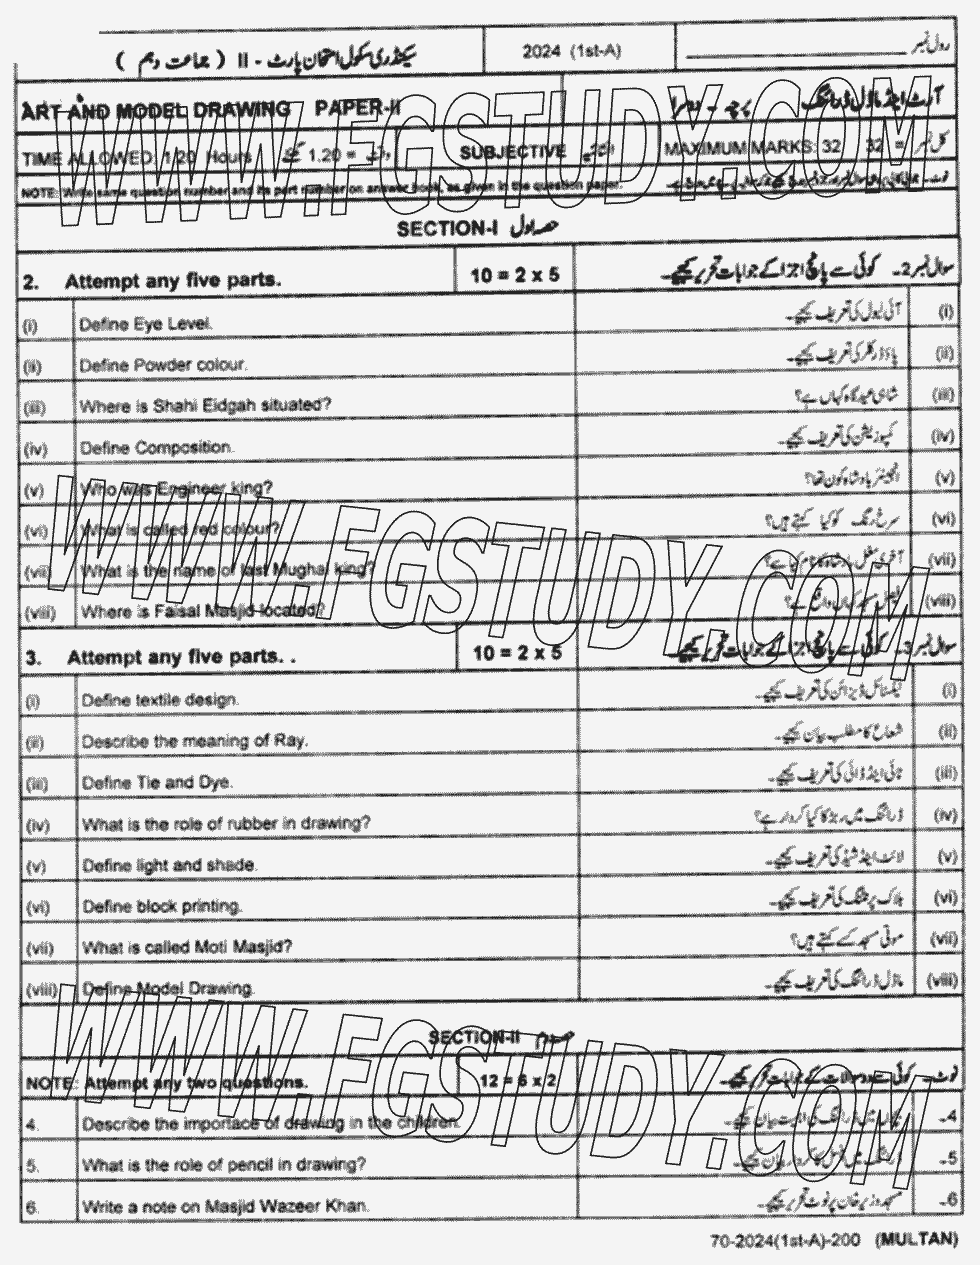 سیکنڈری سکول امتحان پارٹ - II ( جماعت دہم ) 2024 (1st-A) رول نمبر
ART AND MODEL DRAWING PAPER-II پرچہ - دوسرا آرٹ اینڈ ماڈل ڈرائنگ
TIME ALLOWED: 1.20 Hours 1.20 = وقت SUBJECTIVE MAXIMUM MARKS: 32 32 = کل نمبر
NOTE: Write same question number and its part number on answer book, as given in the question paper.
SECTION-I حصہ اول
2. Attempt any five parts. 10 = 2 x 5 سوال نمبر 2۔ کوئی سے پانچ اجزا کے جوابات تحریر کیجیے۔
(i) Define Eye Level. آئی لیول کی تعریف کیجیے۔ (i)
(ii) Define Powder colour. پاؤڈر کلر کی تعریف کیجیے۔ (ii)
(iii) Where is Shahi Eidgah situated? شاہی عیدگاہ کہاں ہے؟ (iii)
(iv) Define Composition. کمپوزیشن کی تعریف کیجیے۔ (iv)
(v) Who was Engineer king? انجینئر بادشاہ کون تھا؟ (v)
(vi) What is called red colour? سرخ رنگ کو کیا کہتے ہیں؟ (vi)
(vii) What is the name of last Mughal king? آخری مغل بادشاہ کا نام کیا ہے؟ (vii)
(viii) Where is Faisal Masjid located? فیصل مسجد کہاں واقع ہے؟ (viii)
3. Attempt any five parts. . 10 = 2 x 5 سوال نمبر 3۔ کوئی سے پانچ اجزا کے جوابات تحریر کیجیے۔
(i) Define textile design. ٹیکسٹائل ڈیزائن کی تعریف کیجیے۔ (i)
(ii) Describe the meaning of Ray. شعاع کا مطلب بیان کیجیے۔ (ii)
(iii) Define Tie and Dye. ٹائی اینڈ ڈائی کی تعریف کیجیے۔ (iii)
(iv) What is the role of rubber in drawing? ڈرائنگ میں ربڑ کا کیا کردار ہے؟ (iv)
(v) Define light and shade. لائٹ اینڈ شیڈ کی تعریف کیجیے۔ (v)
(vi) Define block printing. بلاک پرنٹنگ کی تعریف کیجیے۔ (vi)
(vii) What is called Moti Masjid? موتی مسجد کسے کہتے ہیں؟ (vii)
(viii) Define Model Drawing. ماڈل ڈرائنگ کی تعریف کیجیے۔ (viii)
SECTION-II حصہ دوم
NOTE: Attempt any two questions. 12 = 6 x 2 نوٹ۔ کوئی سے دو سوالات کے جوابات تحریر کیجیے۔
4. Describe the importace of drawing in the children. بچوں میں ڈرائنگ کی اہمیت بیان کیجیے۔ 4۔
5. What is the role of pencil in drawing? ڈرائنگ میں پنسل کا کردار بیان کیجیے۔ 5۔
6. Write a note on Masjid Wazeer Khan. مسجد وزیر خان پر نوٹ تحریر کیجیے۔ 6۔
70-2024(1st-A)-200 (MULTAN)
WWW.FGSTUDY.COM
WWW.FGSTUDY.COM
WWW.FGSTUDY.COM